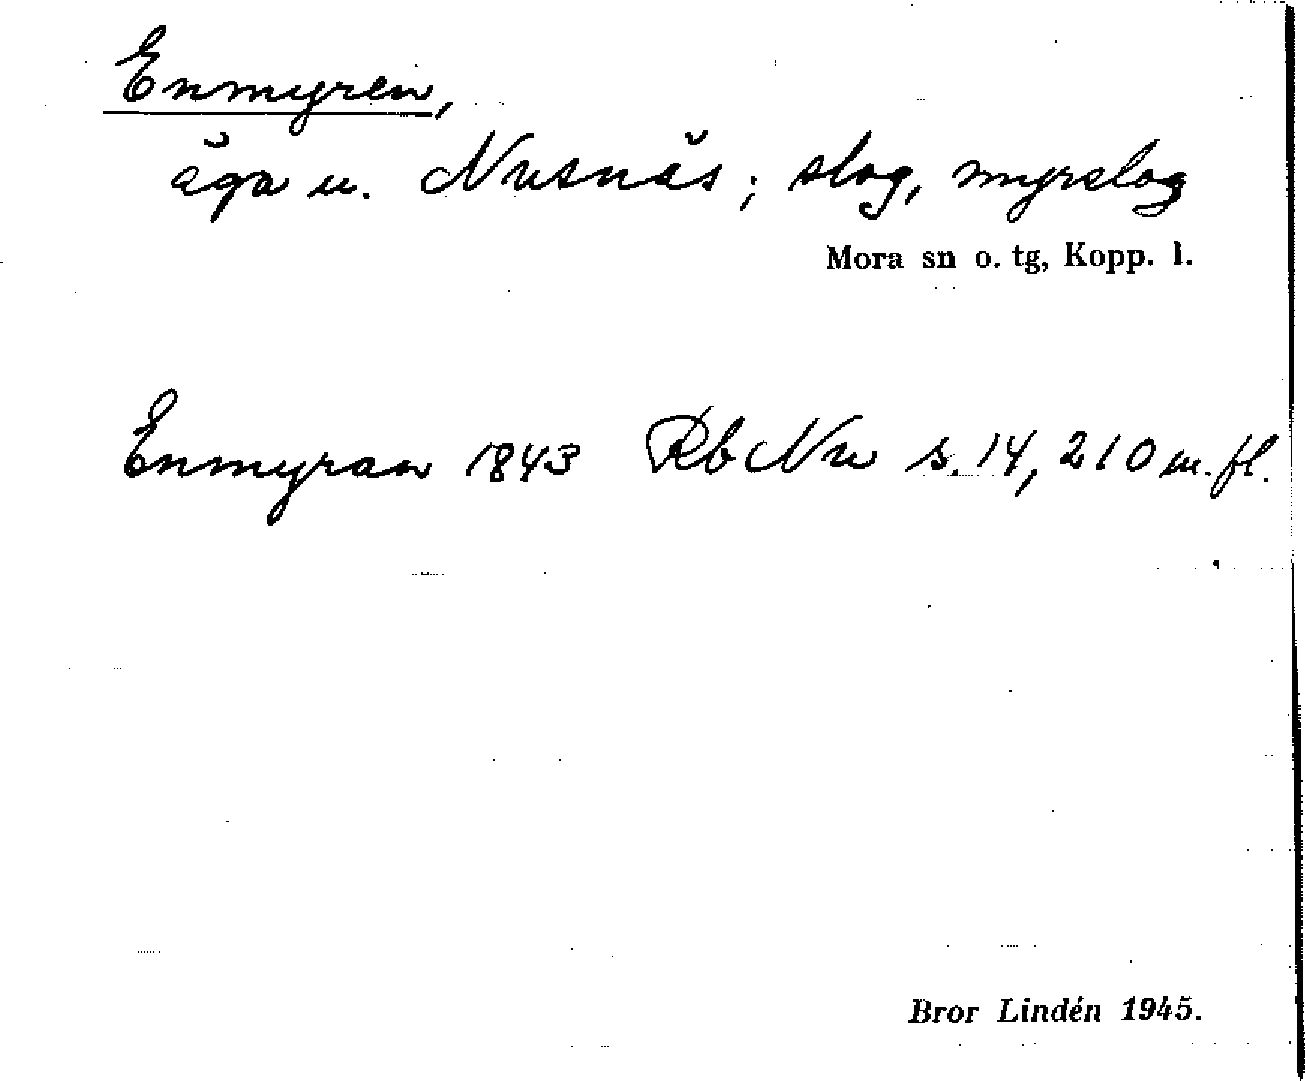 Enmyren,
äga u. Nusnäs; slog, myrslog
Mora sn o. tg, Kopp. l.
Enmyran 1843 Rb Nu s. 14, 210 m. fl.
Bror Lindén 1945.